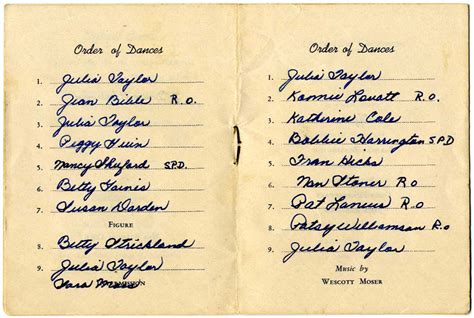 Order of Dances
1. Julia Taylor
2. Jean Bible R.O.
3. Julia Taylor
4. Peggy Guin
5. Nancy Shuford S.P.D.
6. Betty Gaines
7. Susan Darden
FIGURE
8. Betty Strickland
9. Julia Taylor
Sara Moss
Order of Dances
1. Julia Taylor
2. Kannie Lovatt R.O.
3. Katherine Cole
4. Bobbie Harrington S.P.D
5. Fran Hicks
6. Nan Stoner R.O
7. Pat Laneius R.O
8. Patsy Williamson R.o
9. Julia Taylor
Music by
WESCOTT MOSER